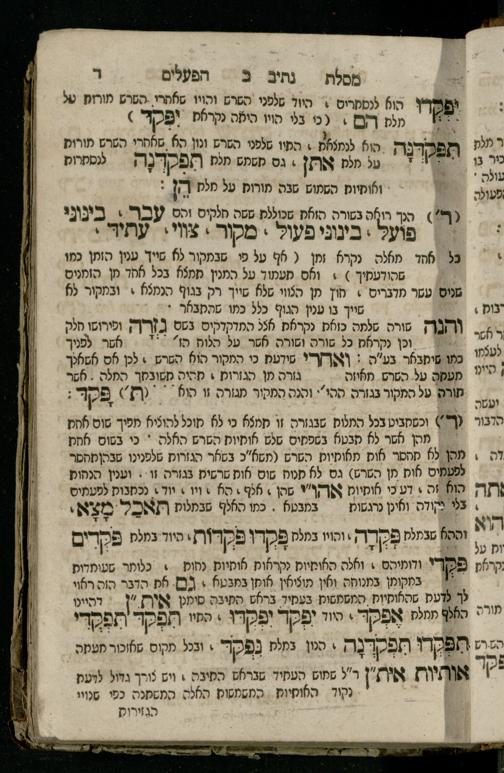 מסלת נתיב ב הפעלים ד
יִפְקְדוּ הוא לנסתרים , היוד שלפני השרש והויו שאחרי השרש מורות על
מלת הם , ( כי בלי הויו היתה נקראת יִפְקֹד )
תִּפְקֹדְנָה הוא לנמצאת , התיו שלפני השרש ונון הא שאחרי השרש מורות
על מלת אתן , גם תשמש מלת תִּפְקֹדְנָה לנסתרות
ואותיות השמוש שבה מורות על מלת הֵן :
(ר׳) הנך רואה בשורה הזאת שכוללת ששה חלקים והם עבר , בינוני
פועל , בינוני פעול , מקור , צווי , עתיד ,
כל אחד מאלה נקרא זמן ( אף על פי שבמקור לא שייך ענין הזמן כמו
שהודעתיך ) , ואם תעמוד על המנין תמצא בכל אחד מן הזמנים
שנים עשר מדברים , חוץ מן הצווי שלא שייך רק בגוף הנמצא , ובמקור לא
שייך בו ענין הגוף כלל כמו שהתבאר ׃
והנה שורה שלמה כזאת נקראת אצל המדקדקים בשם גִזְרָה ופירושו חלק
וכן נקראת כל שורה ושורה אשר על הלוח הז׳ אשר לפניך
כמו שיתבאר בע״ה : ואחרי שידעת כי המקור הוא השרש , לכן אם אשאלך
מעתה על השרש מאיזה גזרה מן הגזרות , תהיה תשובתך המלה . אשר
תורה על המקור בגזרה ההי׳ והנה המקור מגזרה זו הוא (ת׳) פָּקֹד :
(ר׳) וכשתביט בכל המלות שבגזרה זו תמצא כי לא תוכל להוציא מפיך שום אחת
מהן אשר לא תבטא בשפתים שלש אותיות השרש האלה ׳ כי בשום אחת
מהן לא תחסר אות מאותיות השרש (משא״כ בשאר הגזרות שלפנינו שבהן תחסר
לפעמים אות מן השרש) גם לא תנוח שום אות שרשית בגזרה זו . וענין הנחות
הוא זה , דע כי אותיות אהו״י שהן , אלף , הא , ויו , יוד , נכתבות לפעמים
בלי נקודה ואינן נרגשות במבטא . כמו האלף שבמלות תֹּאכַל מָצָא ,
וההא שבמלת פָּקְדָה , והויו במלת פָּקְדוּ פּקְדוֹת , היוד במלת פּקְדִים
פִּקְדִי ודומיהם , ואלה האותיות נקראות אותיות נחות , כלומר שעומדות
במקומן במנוחה ואין מוציאין אותן במבטא , גם את הדבר הזה ראוי
לך לדעת שהאותיות המשמשות בעתיד בראש התיבה סימנן אית״ן דהיינו
האלף ממלת אֶפְקֹד , היוד יִפְקֹד יִפְקְדוּ , התיו תִּפְקֹד תִּפְקְדִי
תִּפְקְדוּ תִּפְקֹדְנָה , הנון במלת נִפְקֹד , ובכל מקום שאזכור מעתה
אותיות אית״ן ר״ל שמוש העתיד שבראש התיבה , ויש צורך גדול לדעת
נקוד האותיות המשמשות האלה המשתנה כפי שנויי
הגזירות